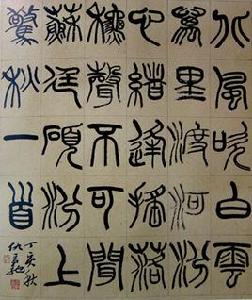 北風吹白雲
萬里渡河汾
心緒逢搖落
秋聲不可聞
蘇廷碩汾上
驚秋一首
丁亥秋
仇高馳